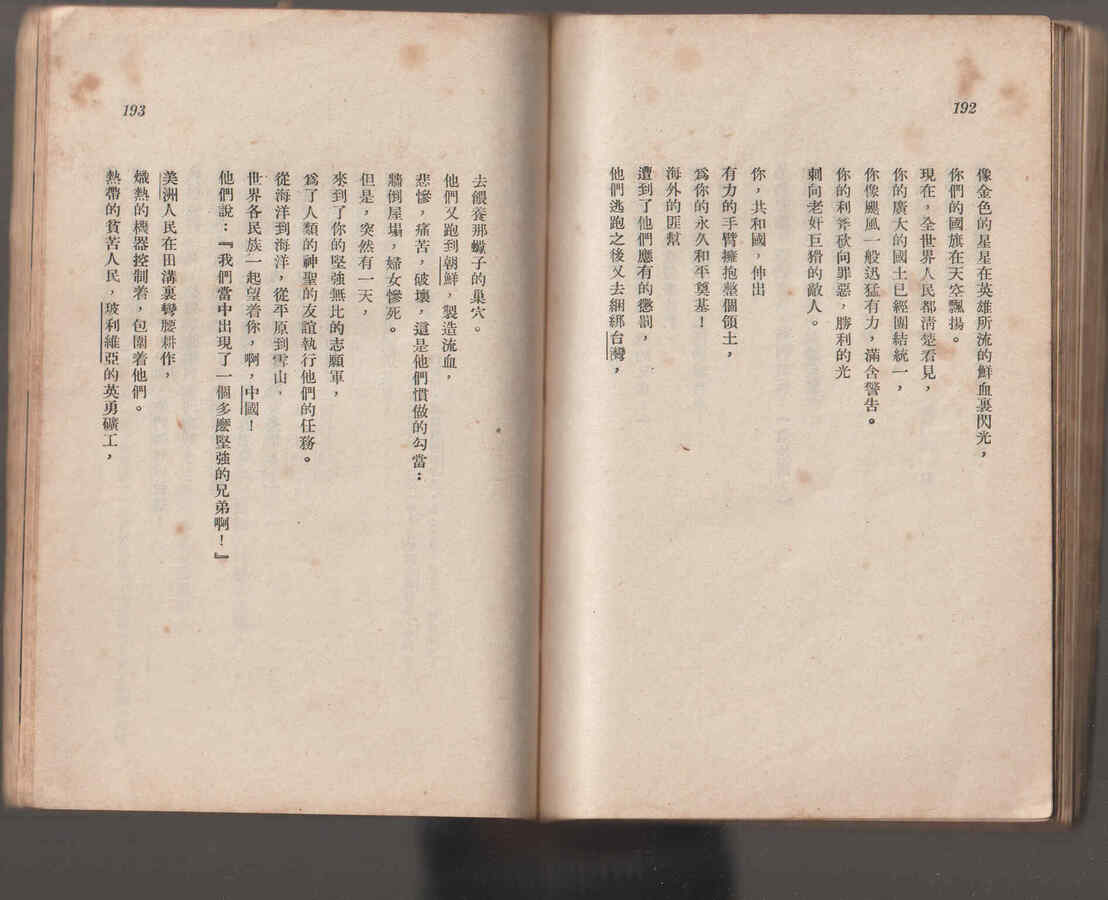 192
像金色的星星在英雄所流的鮮血裏閃光，
你們的國旗在天空飄揚。
現在，全世界人民都清楚看見，
你的廣大的國土已經團結統一，
你像颶風一般迅猛有力，滿含警告。
你的利斧砍向罪惡，勝利的光
刺向老奸巨猾的敵人。
你，共和國，伸出
有力的手臂擁抱整個領土，
爲你的永久和平奠基！
海外的匪幫
遭到了他們應有的懲罰，
他們逃跑之後又去綑綁台灣，
193
去餵養那蠍子的巢穴。
他們又跑到朝鮮，製造流血，
悲慘，痛苦，破壞，這是他們慣做的勾當：
牆倒屋塌，婦女慘死。
但是，突然有一天，
來到了你的堅強無比的志願軍，
爲了人類的神聖的友誼執行他們的任務。
從海洋到海洋，從平原到雪山，
世界各民族一起望着你，啊，中國！
他們說：『我們當中出現了一個多麼堅強的兄弟啊！』
美洲人民在田溝裏彎腰耕作，
熾熱的機器控制着，包圍着他們。
熱帶的貧苦人民，玻利維亞的英勇礦工，